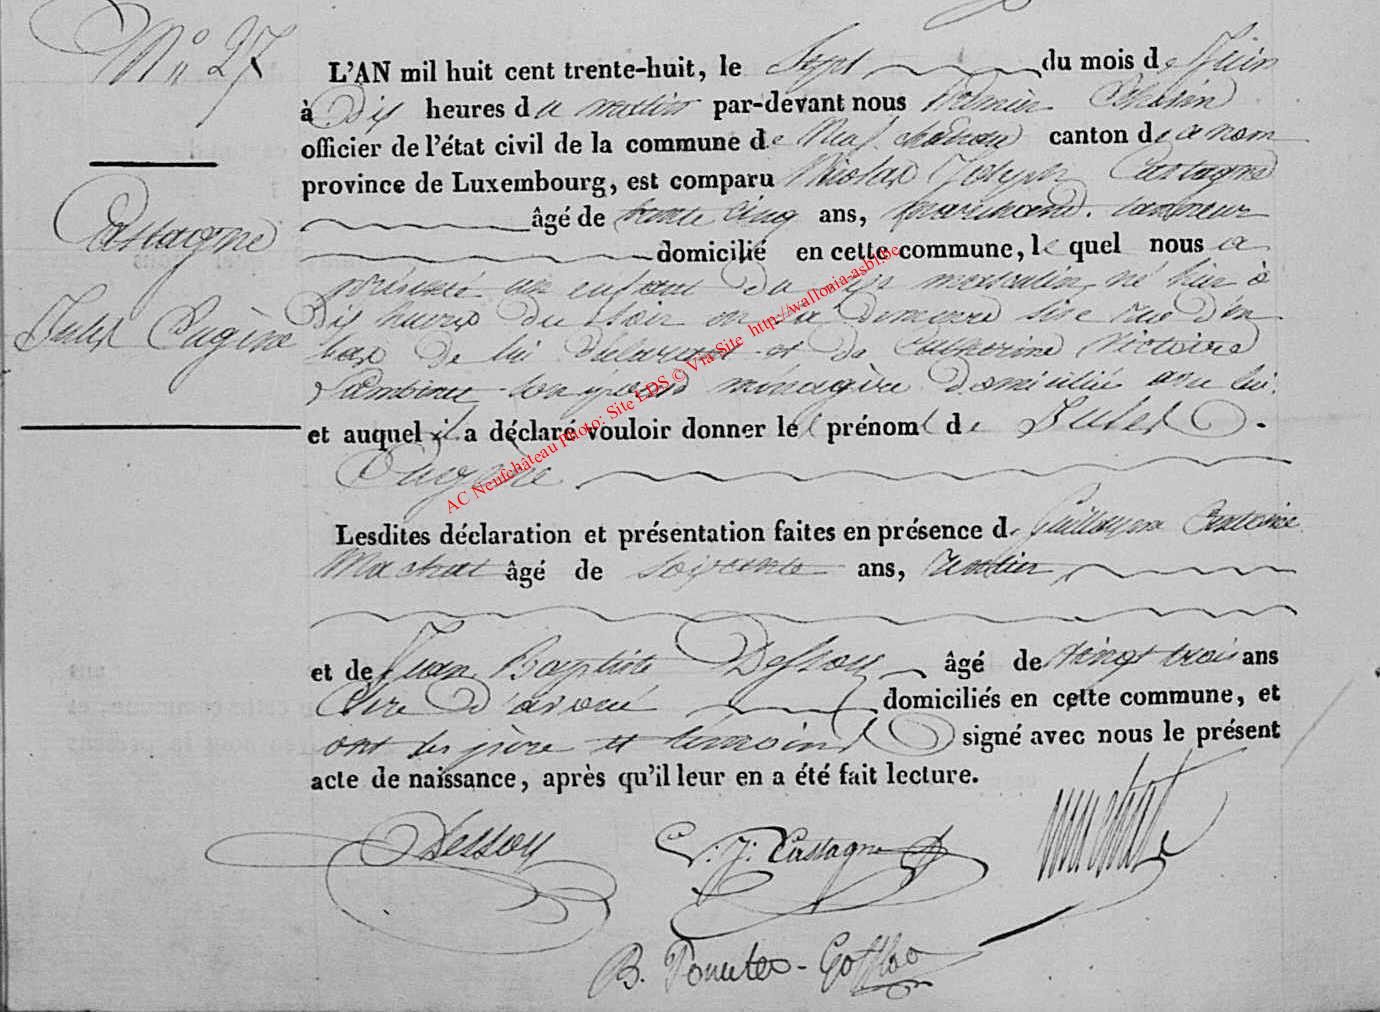 N° 27
L'AN mil huit cent trente-huit, le Sept du mois de Juin
à Dix heures du matin par-devant nous
officier de l'état civil de la commune de Neufchâteau canton de ce nom
province de Luxembourg, est comparu Nicolas Joseph Castagne
âgé de trente cinq ans, marchand tanneur
domicilié en cette commune, lequel nous a
présenté un enfant du sexe masculin, né hier à
Dix heures du soir en sa demeure sise rue d'en
bas de lui déclarant et de Catherine Victoire
son épouse ménagère domiciliée avec lui.
et auquel il a déclaré vouloir donner le prénom de Jules
Eugène
Castagne
Jules Eugène
Lesdites déclaration et présentation faites en présence de Guillaume Antoine
Machat âgé de soixante ans, rentier
et de Jean Baptiste Dessoy âgé de vingt trois ans
Clerc d'avoué domiciliés en cette commune, et
ont les père et témoins signé avec nous le présent
acte de naissance, après qu'il leur en a été fait lecture.
Dessoy
J: Castagne
Machat
B.
AC Neufchâteau Photo: Site LDS © Via Site http://wallonia-asbl.be